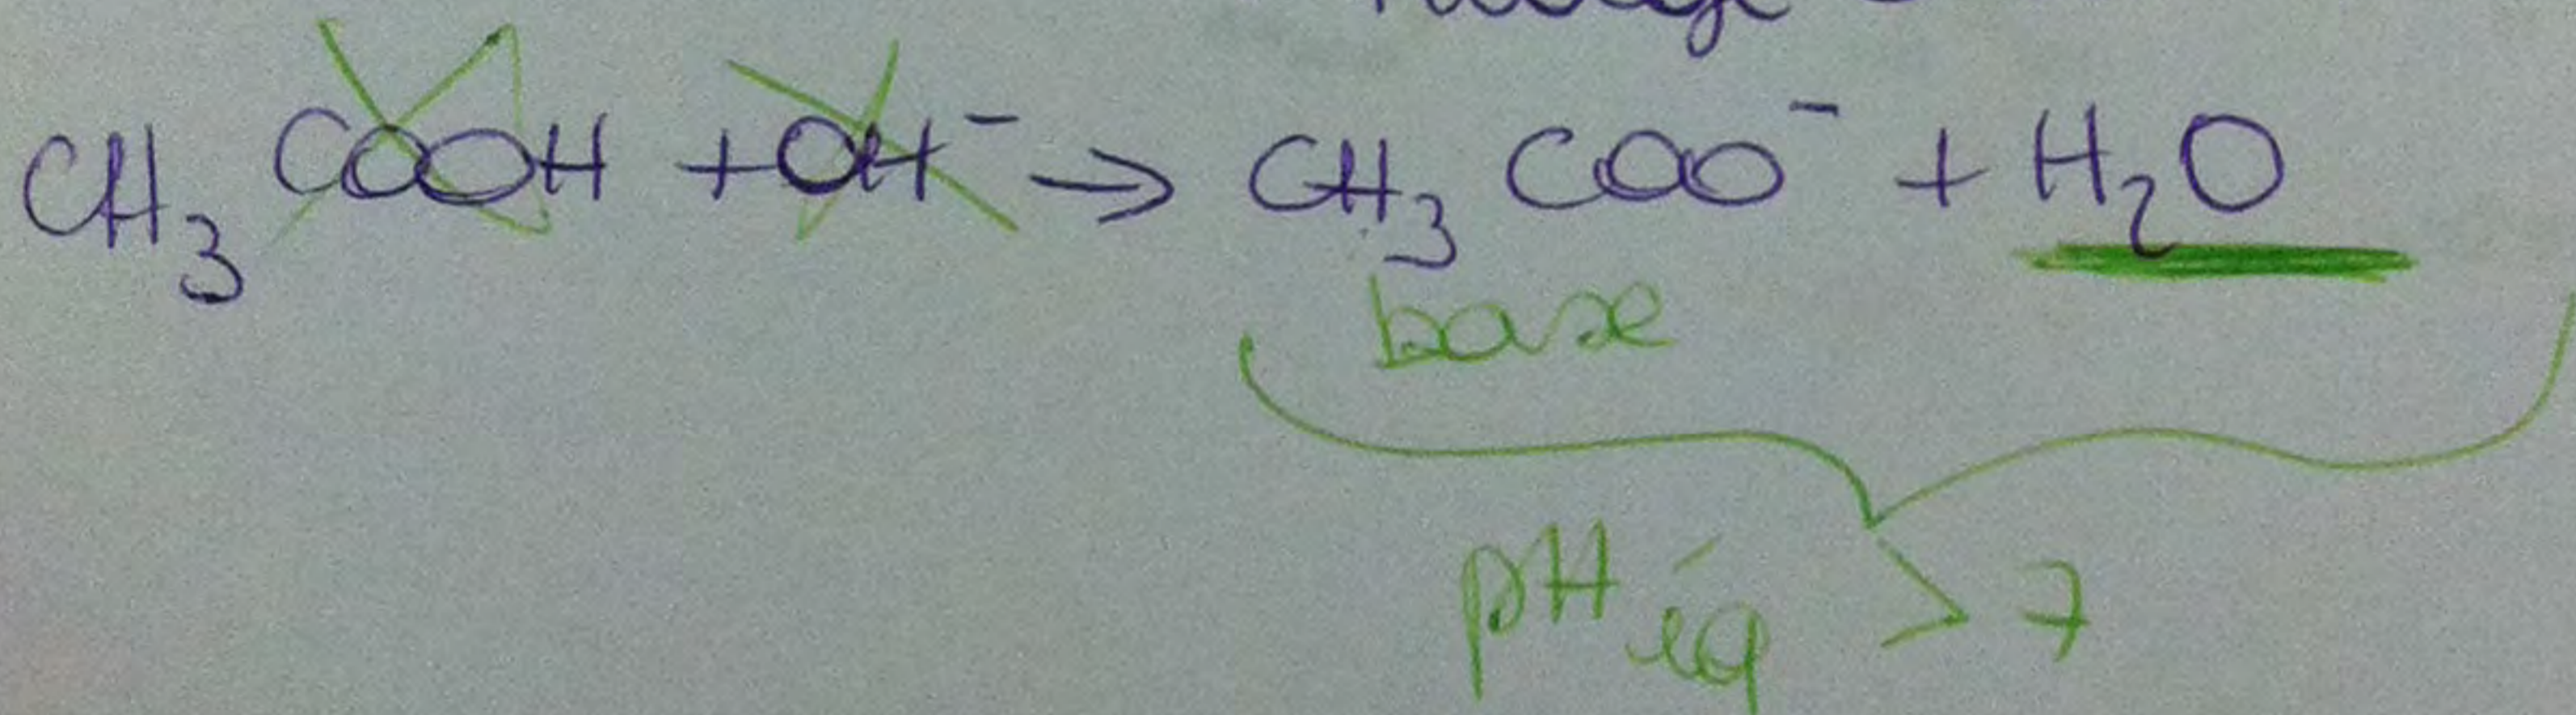 CH₃COOH + OH⁻ → CH₃COO⁻ + H₂O
base
pH éq > 7